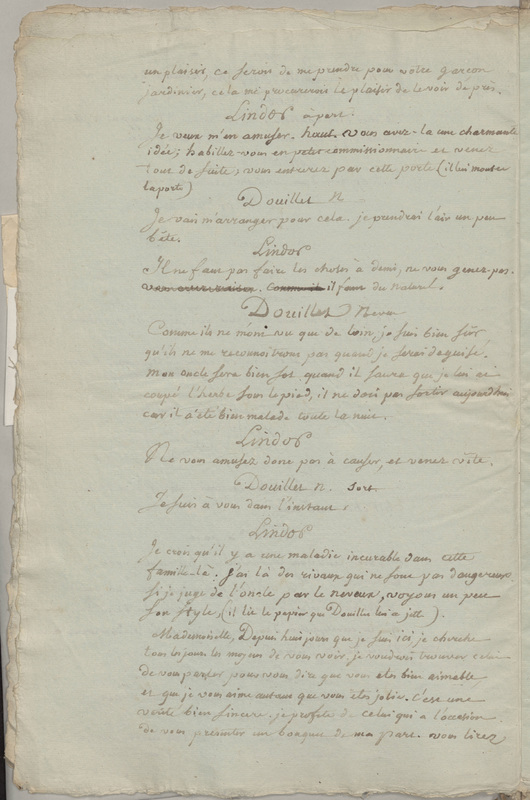 un plaisir, ce seroit de me prendre pour votre garcon
jardinier, cela me procureroit le plaisir de le voir de près.
Lindor à part.
Je veux m'en amuser. haut. vous avez-la une charmante
idée; habillez-vous en petit commissionnaire et venez
tout de suite, vous entrerez par cette porte (il lui montre
la porte)
Douillet N
Je vais m'arranger pour cela. je prendrai l'air un peu
bête.
Lindor
Il ne faut pas faire les choses à demi, ne vous genez pas.
il faut du naturel.
Douillet Neveu
Comme ils ne m'ont vu que de loin, je suis bien sûr
qu'ils ne me reconnoitrons pas quand je serai deguisé.
mon oncle sera bien sot quand il saura que je lui ai
coupé l'herbe sous le pied, il ne doit pas sortir aujourd'hui
car il a été bien malade toute la nuit.
Lindor
Ne vous amusez donc pas à causer, et venez vîte.
Douillet N. Sort
Je suis à vous dans l'instant.
Lindor
Je crois qu'il y a une maladie incurable dans cette
famille là. j'ai là des rivaux qui ne sont pas dangereux
si je juge de l'oncle par le neveux, voyons un peu
son style, (il lit le papier que Douillet lui a jetté).
Mademoiselle, Depuis huit jours que je suis ici je cherche
tous les jours les moyens de vous voir, je voudrois trouver celui
de vous parler, pour vous dire que vous etes bien aimable,
et que je vous aime autant que vous êtes jolie. C'est une
verité bien sincere. je profite de celui qui a l'occasion
de vous presenter un bouquet de ma part. vous lirez